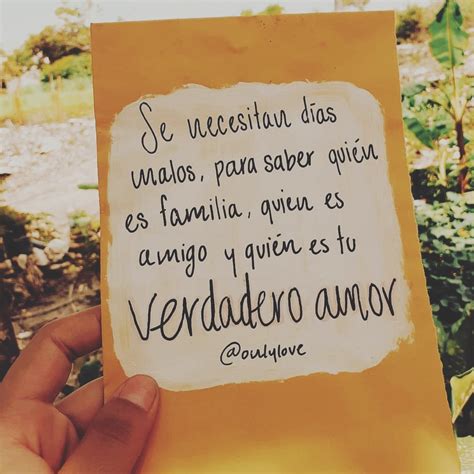 Se necesitan días
malos, para saber quién
es familia, quien es
amigo y quién es tu
verdadero amor
@owlylove